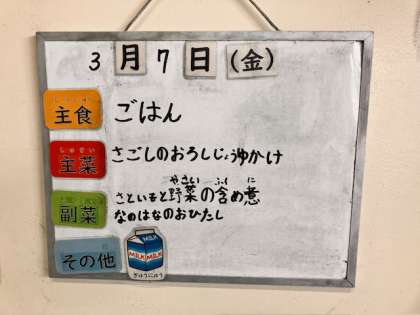 3月7日(金)
主食 ごはん
しゅさい
主菜 さごしのおろしじょうゆかけ
やさい ふく に
さといもと野菜の含め煮
副菜
なのはなのおひたし
その他
MILK
MILK MILK
ぎゅうにゅう